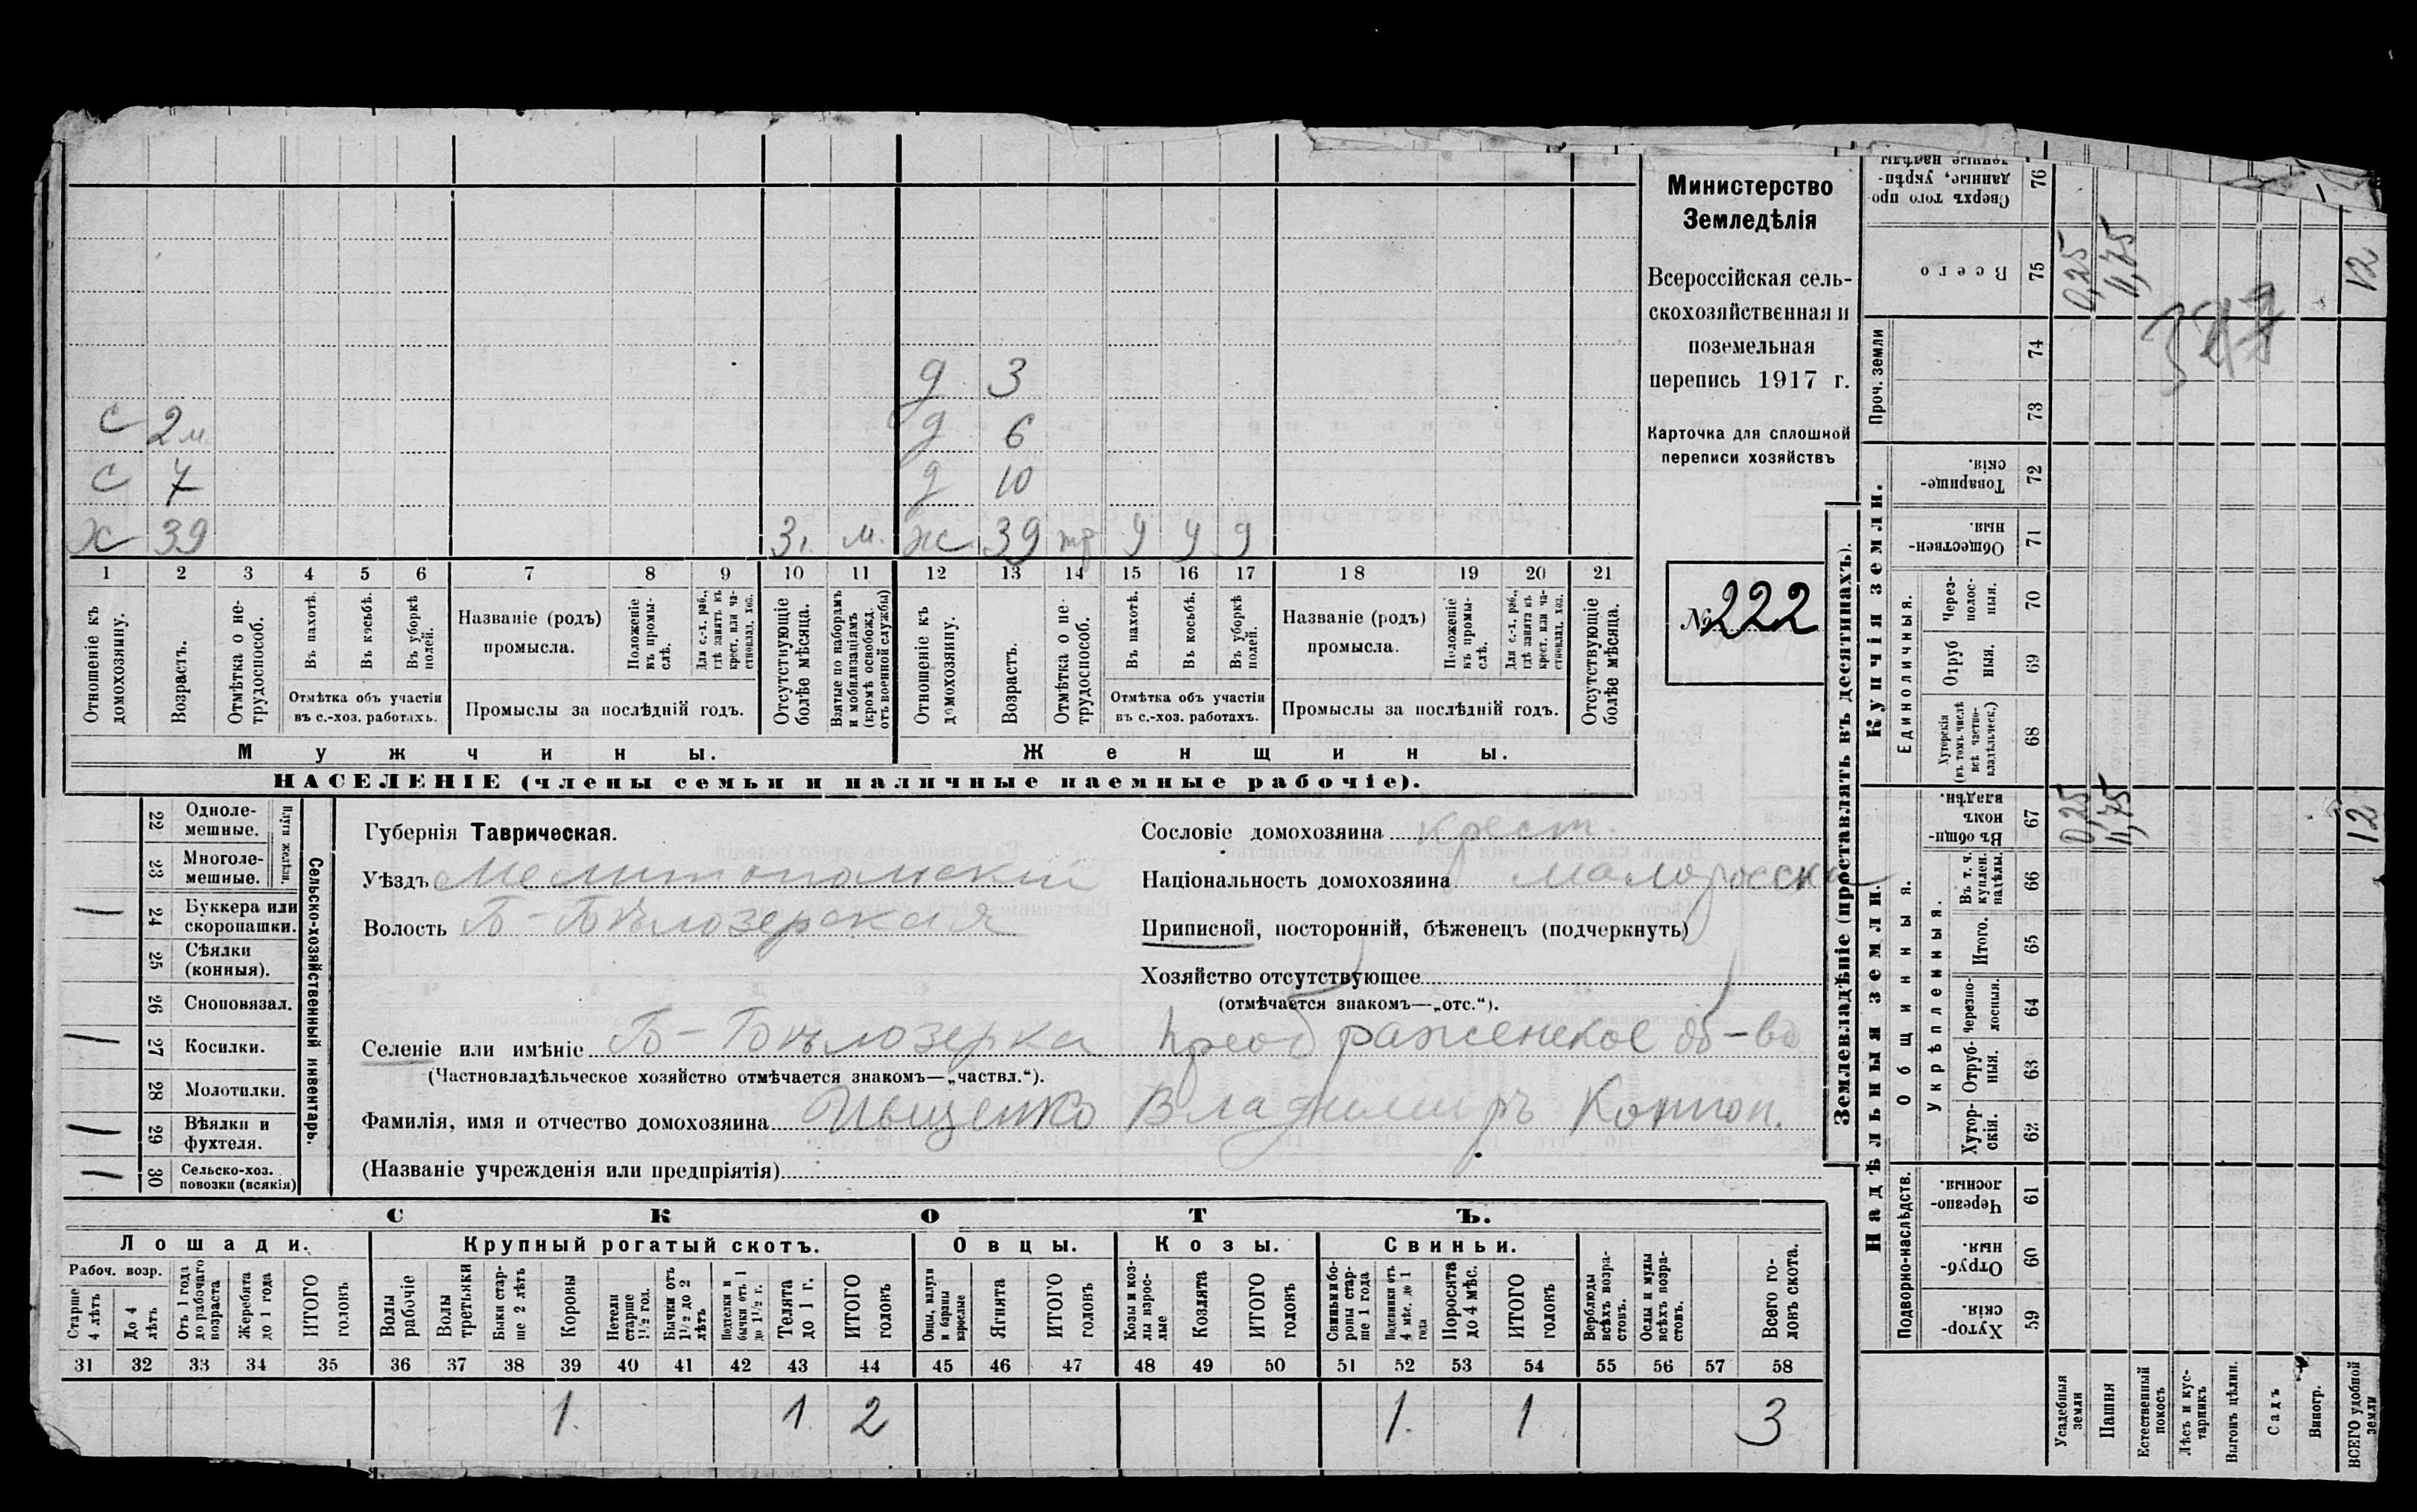 д 3
с 2м д 6
с 7 д 10
х 39 3. м. ж 39 тр у у у
1 2 3 4 5 6 7 8 9 10 11 12 13 14 15 16 17 18 19 20 21
Отношеніе къ домохозяину.
Возрастъ.
Отмѣтка о не-трудоспособ.
Въ пахотѣ.
Въ косьбѣ.
Въ уборкѣ полей.
Отмѣтка объ участіи въ с.-хоз. работахъ.
Названіе (родъ) промысла.
Положеніе въ промы-слѣ.
Для с.-х. раб., гдѣ занятъ въ крест. или ча-стновлад. хоз.
Промыслы за послѣдній годъ.
Отсутствующіе болѣе мѣсяца.
Взятые по наборамъ и мобилизаціямъ (кромѣ освобожд. отъ военной службы)
Отношеніе къ домохозяину.
Возрастъ.
Отмѣтка о не-трудоспособ.
Въ пахотѣ.
Въ косьбѣ.
Въ уборкѣ полей.
Отмѣтка объ участіи въ с.-хоз. работахъ.
Названіе (родъ) промысла.
Положеніе въ промы-слѣ.
Для с.-х. раб., гдѣ занята въ крест. или ча-стновлад. хоз.
Промыслы за послѣдній годъ.
Отсутствующіе болѣе мѣсяца.
Мужчины. Женщины.
НАСЕЛЕНІЕ (члены семьи и наличные наемные рабочіе).
Министерство
Земледѣлія
Всероссійская сель-
скохозяйственная и
поземельная
перепись 1917 г.
Карточка для сплошной
переписи хозяйствъ
№ 222
Сельско-хозяйственный инвентарь.
Плуги желѣзн.
22 Одноле-мешные.
23 Многоле-мешные.
1 24 Буккера или скоропашки.
25 Сѣялки (конныя).
26 Сноповязал.
1 27 Косилки.
28 Молотилки.
1 29 Вѣялки и фухтеля.
1 30 Сельско-хоз. повозки (всякія)
Губернія Таврическая.
Уѣздъ Мелитопольскій
Волость Б-Бѣлозерская
Сословіе домохозяина крест.
Національность домохозяина малоросска
Приписной, посторонній, бѣженецъ (подчеркнуть)
Хозяйство отсутствующее
(отмѣчается знакомъ—„отс.“).
Селеніе или имѣніе Б-Бѣлозерка Преображенское об-во
(Частновладѣльческое хозяйство отмѣчается знакомъ—„частвл.“).
Фамилія, имя и отчество домохозяина Ивщенко Владимиръ
(Названіе учрежденія или предпріятія)
СКОТЪ.
Лошади. Крупный рогатый скотъ. Овцы. Козы. Свиньи.
Рабоч. возр.
Старше 4 лѣтъ
До 4 лѣтъ
Отъ 1 года до рабочаго возраста
Жеребята до 1 года
ИТОГО головъ
Волы рабочіе
Волы третьяки
Быки стар-ше 2 лѣтъ
Коровы
Нетели старше 1½ год.
Бычки отъ 1½ до 2 лѣтъ
Подтелки и бычки отъ 1 до 1½ г.
Телята до 1 г.
ИТОГО головъ
Овцы, валухи и бараны взрослые
Ягнята
ИТОГО головъ
Козы и коз-лы взрос-лые
Козлята
ИТОГО головъ
Свиньи и бо-ровы стар-ше 1 года
Подсвинки отъ 4 мѣс. до 1 года
Поросята до 4 мѣс.
ИТОГО головъ
Верблюды всѣхъ возра-стовъ.
Ослы и мулы всѣхъ возра-стовъ.
Всего го-ловъ скота.
31 32 33 34 35 36 37 38 39 40 41 42 43 44 45 46 47 48 49 50 51 52 53 54 55 56 57 58
1. 1 2 1. 1 3
Землевладѣніе (проставлять въ десятинахъ).
Сверхъ того про
данные, укрѣп-
ленные надѣлы
76
Всего 75 0,25 11,75 12
347
Проч. земли
74
73
Купчія земли.
Товарище-скія. 72
Обществен-ныя. 71
Единоличныя.
Через-полос-ныя. 70
Отруб ныя. 69
Хуторскія (въ томъ числѣ всѣ частно-владѣльческ.) 68
Надѣльныя земли.
Общинныя.
Въ общин-номъ владѣн. 67 0,25 11,75 12
Укрѣпленныя.
Въ т. ч. куплен. надѣлы. 66
Итого. 65
Черезпо-лосныя. 64
Отруб-ныя. 63
Хутор-скія. 62
Подворно-наслѣдств.
Черезпо-лосныя. 61
Отруб-ныя. 60
Хутор-скія. 59
Усадебныя земли
Пашня
Естественный покосъ
Лѣсъ и кус-тарникъ
Выгонъ цѣлин.
Садъ
Виногр.
ВСЕГО удобной земли